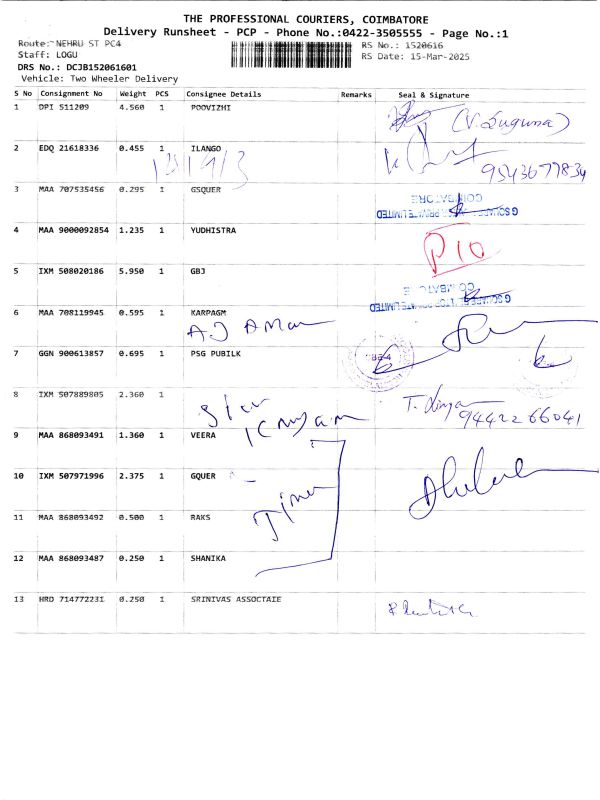 THE PROFESSIONAL COURIERS, COIMBATORE
Delivery Runsheet - PCP - Phone No.:0422-3505555 - Page No.:1
Route: NEHRU ST PC4 RS No.: 1520616
Staff: LOGU RS Date: 15-Mar-2025
DRS No.: DCJB152061601
Vehicle: Two Wheeler Delivery
S No Consignment No Weight PCS Consignee Details Remarks Seal & Signature
1 DPI 511209 4.560 1 POOVIZHI
(V.Suguna)
2 EDQ 21618336 0.455 1 ILANGO
9543677834
3 MAA 707535456 0.295 1 GSQUER
COIMBATORE
PRIVATE LIMITED
4 MAA 9000092854 1.235 1 YUDHISTRA
P10
5 IXM 508020186 5.950 1 GBJ
PRIVATE LIMITED
6 MAA 708119945 0.595 1 KARPAGM
7 GGN 900613857 0.695 1 PSG PUBILK
8 IXM 507889805 2.360 1
94422 66041
9 MAA 868093491 1.360 1 VEERA
10 IXM 507971996 2.375 1 GQUER
11 MAA 868093492 0.500 1 RAKS
12 MAA 868093487 0.250 1 SHANIKA
13 HRD 714772231 0.250 1 SRINIVAS ASSOCTAIE